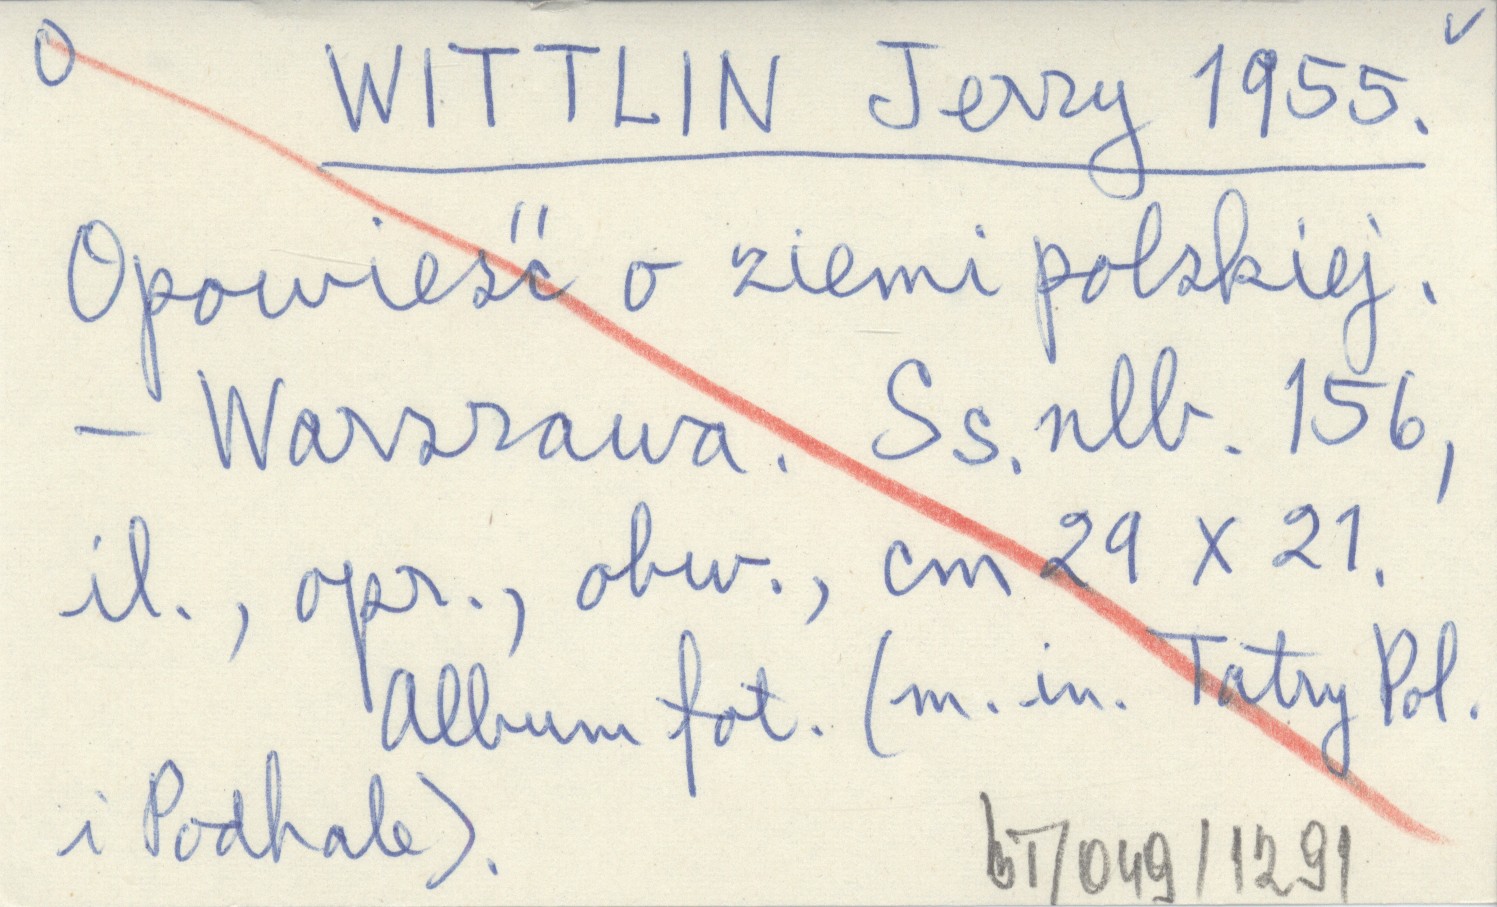 O WITTLIN Jerzy 1955. v
Opowieść o ziemi polskiej.
– Warszawa. Ss. nlb. 156,
il., opr., obw., cm 29 x 21.
Album fot. (m.in. Tatry Pol.
i Podhale).
bT/049/1291